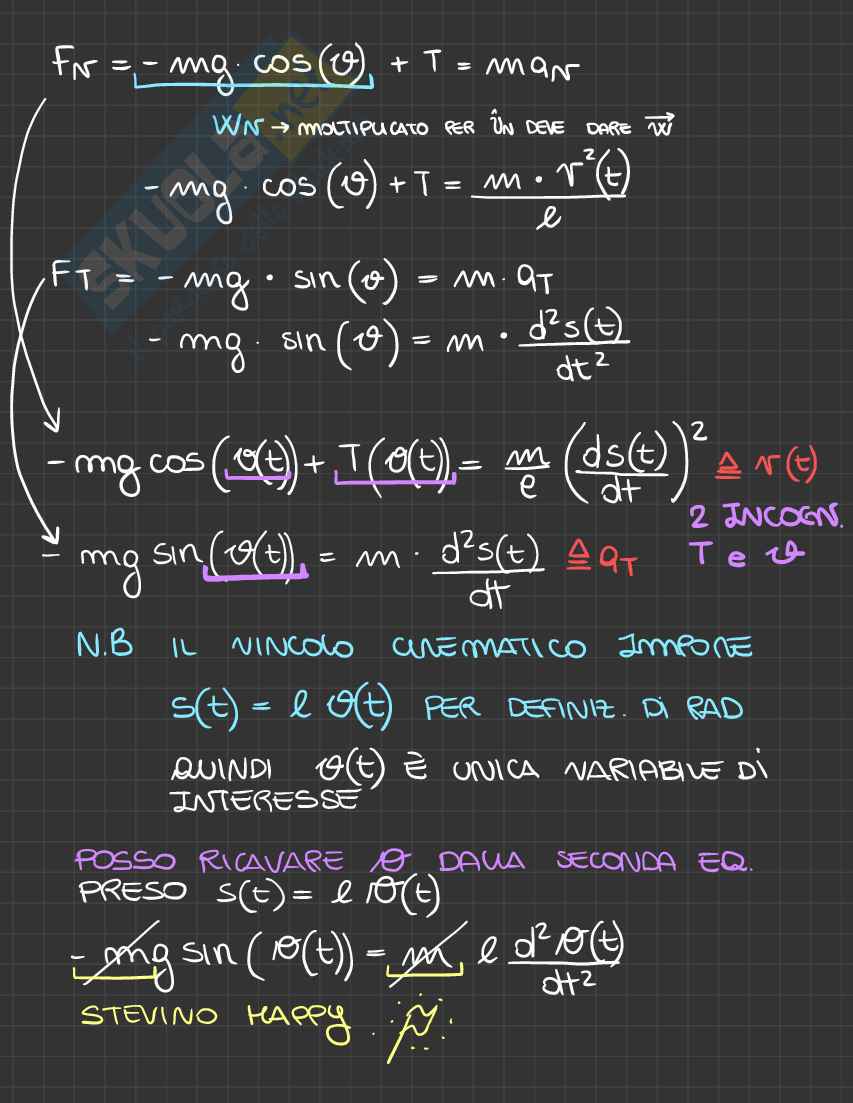 F_N = - mg · cos(ϑ) + T = m a_N
W_N → MOLTIPLICATO PER û_N DEVE DARE w⃗
- mg · cos(ϑ) + T = m · v²(t) / l
F_T = - mg · sin(ϑ) = m · a_T
- mg · sin(ϑ) = m · d²s(t) / dt²
- mg cos(ϑ(t)) + T(ϑ(t)) = m/e (ds(t)/dt)² ≜ v(t)
2 INCOGN.
- mg sin(ϑ(t)) = m · d²s(t) / dt ≜ a_T T e ϑ
N.B IL VINCOLO CINEMATICO IMPONE
s(t) = l ϑ(t) PER DEFINIZ. DI RAD
QUINDI ϑ(t) È UNICA VARIABILE DI
INTERESSE
POSSO RICAVARE ϑ DALLA SECONDA EQ.
PRESO s(t) = l ϑ(t)
- mg sin(ϑ(t)) = m l d²ϑ(t) / dt²
STEVINO HAPPY
SKUOLA.net